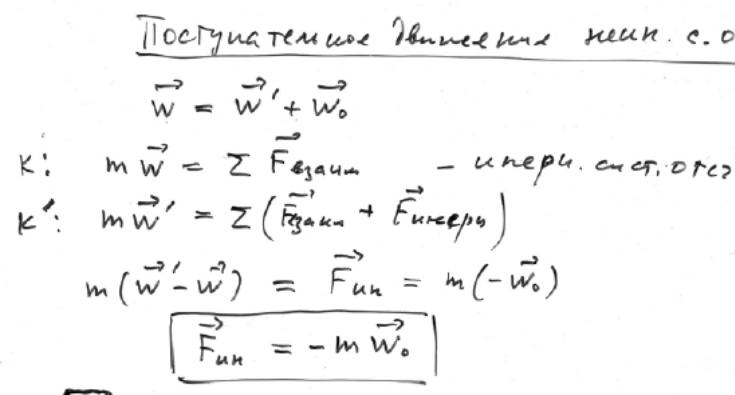 Поступательное движение неин. с.о
w⃗ = w⃗' + w⃗₀
K: m w⃗ = Σ F⃗взаим – инерц. сист. отсч
K': m w⃗' = Σ (F⃗взаим + F⃗инерц)
m (w⃗' - w⃗) = F⃗ин = m (-w⃗₀)
F⃗ин = - m w⃗₀